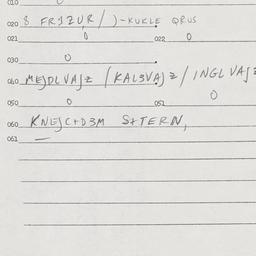 010
020 8 FRIZUR / )-KUKLE QRUS
021 0 022 0
030 0
040 MEJDLVAJZ / KAL3VAJZ / INGLVAJZ
050 0 051 0
060 KNEJC+D3M S+TERN,
061 —